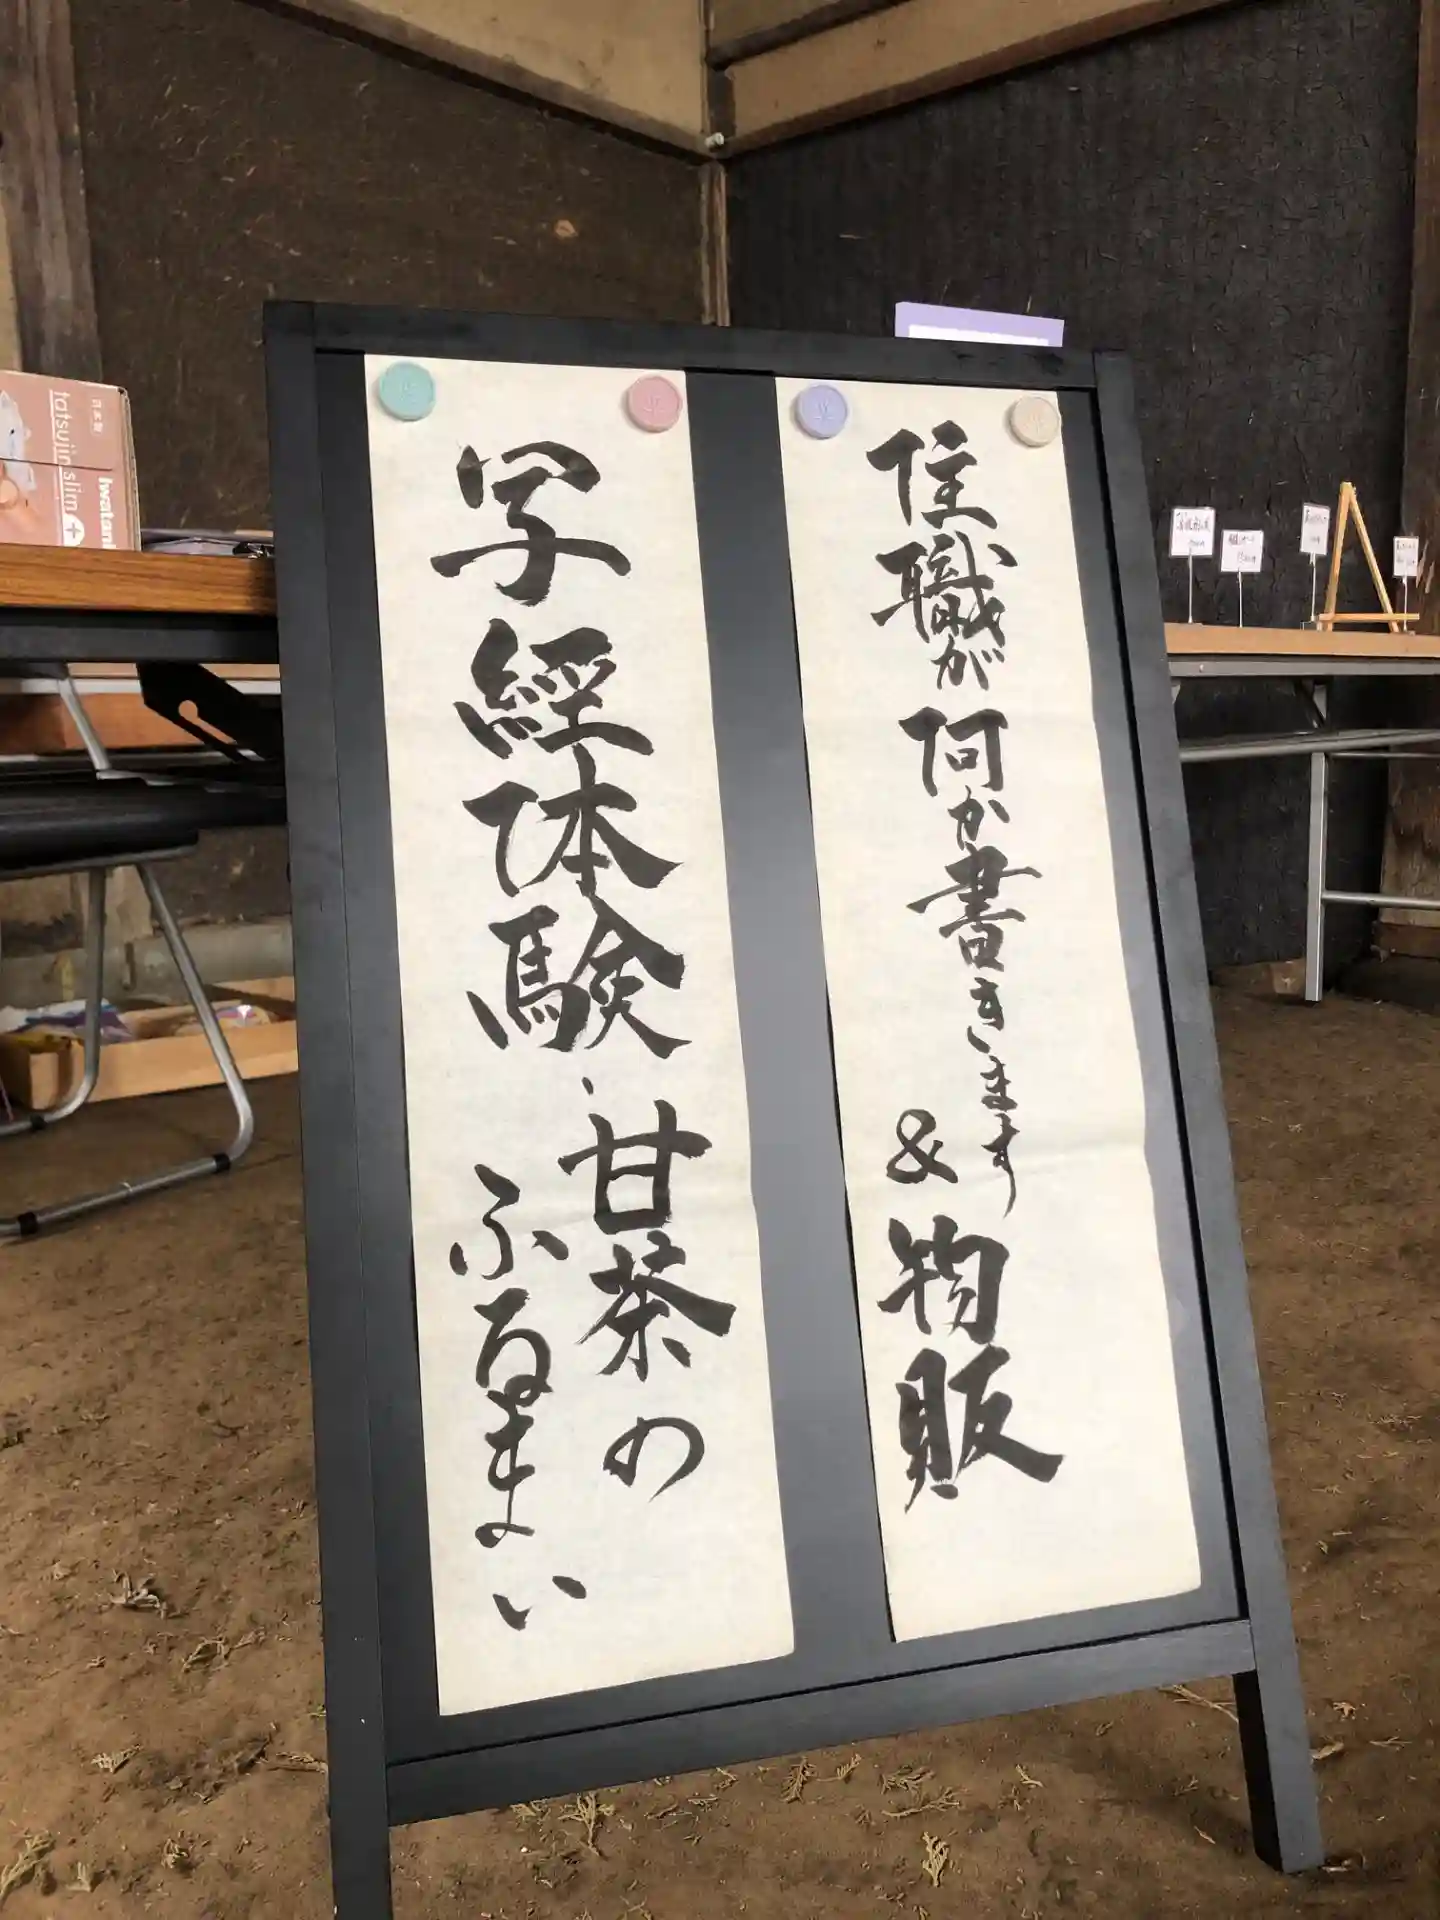 住職が何か書きます
&物販
写経体験・甘茶の
ふるまい
日本製
tatsujin slim+
Iwatani